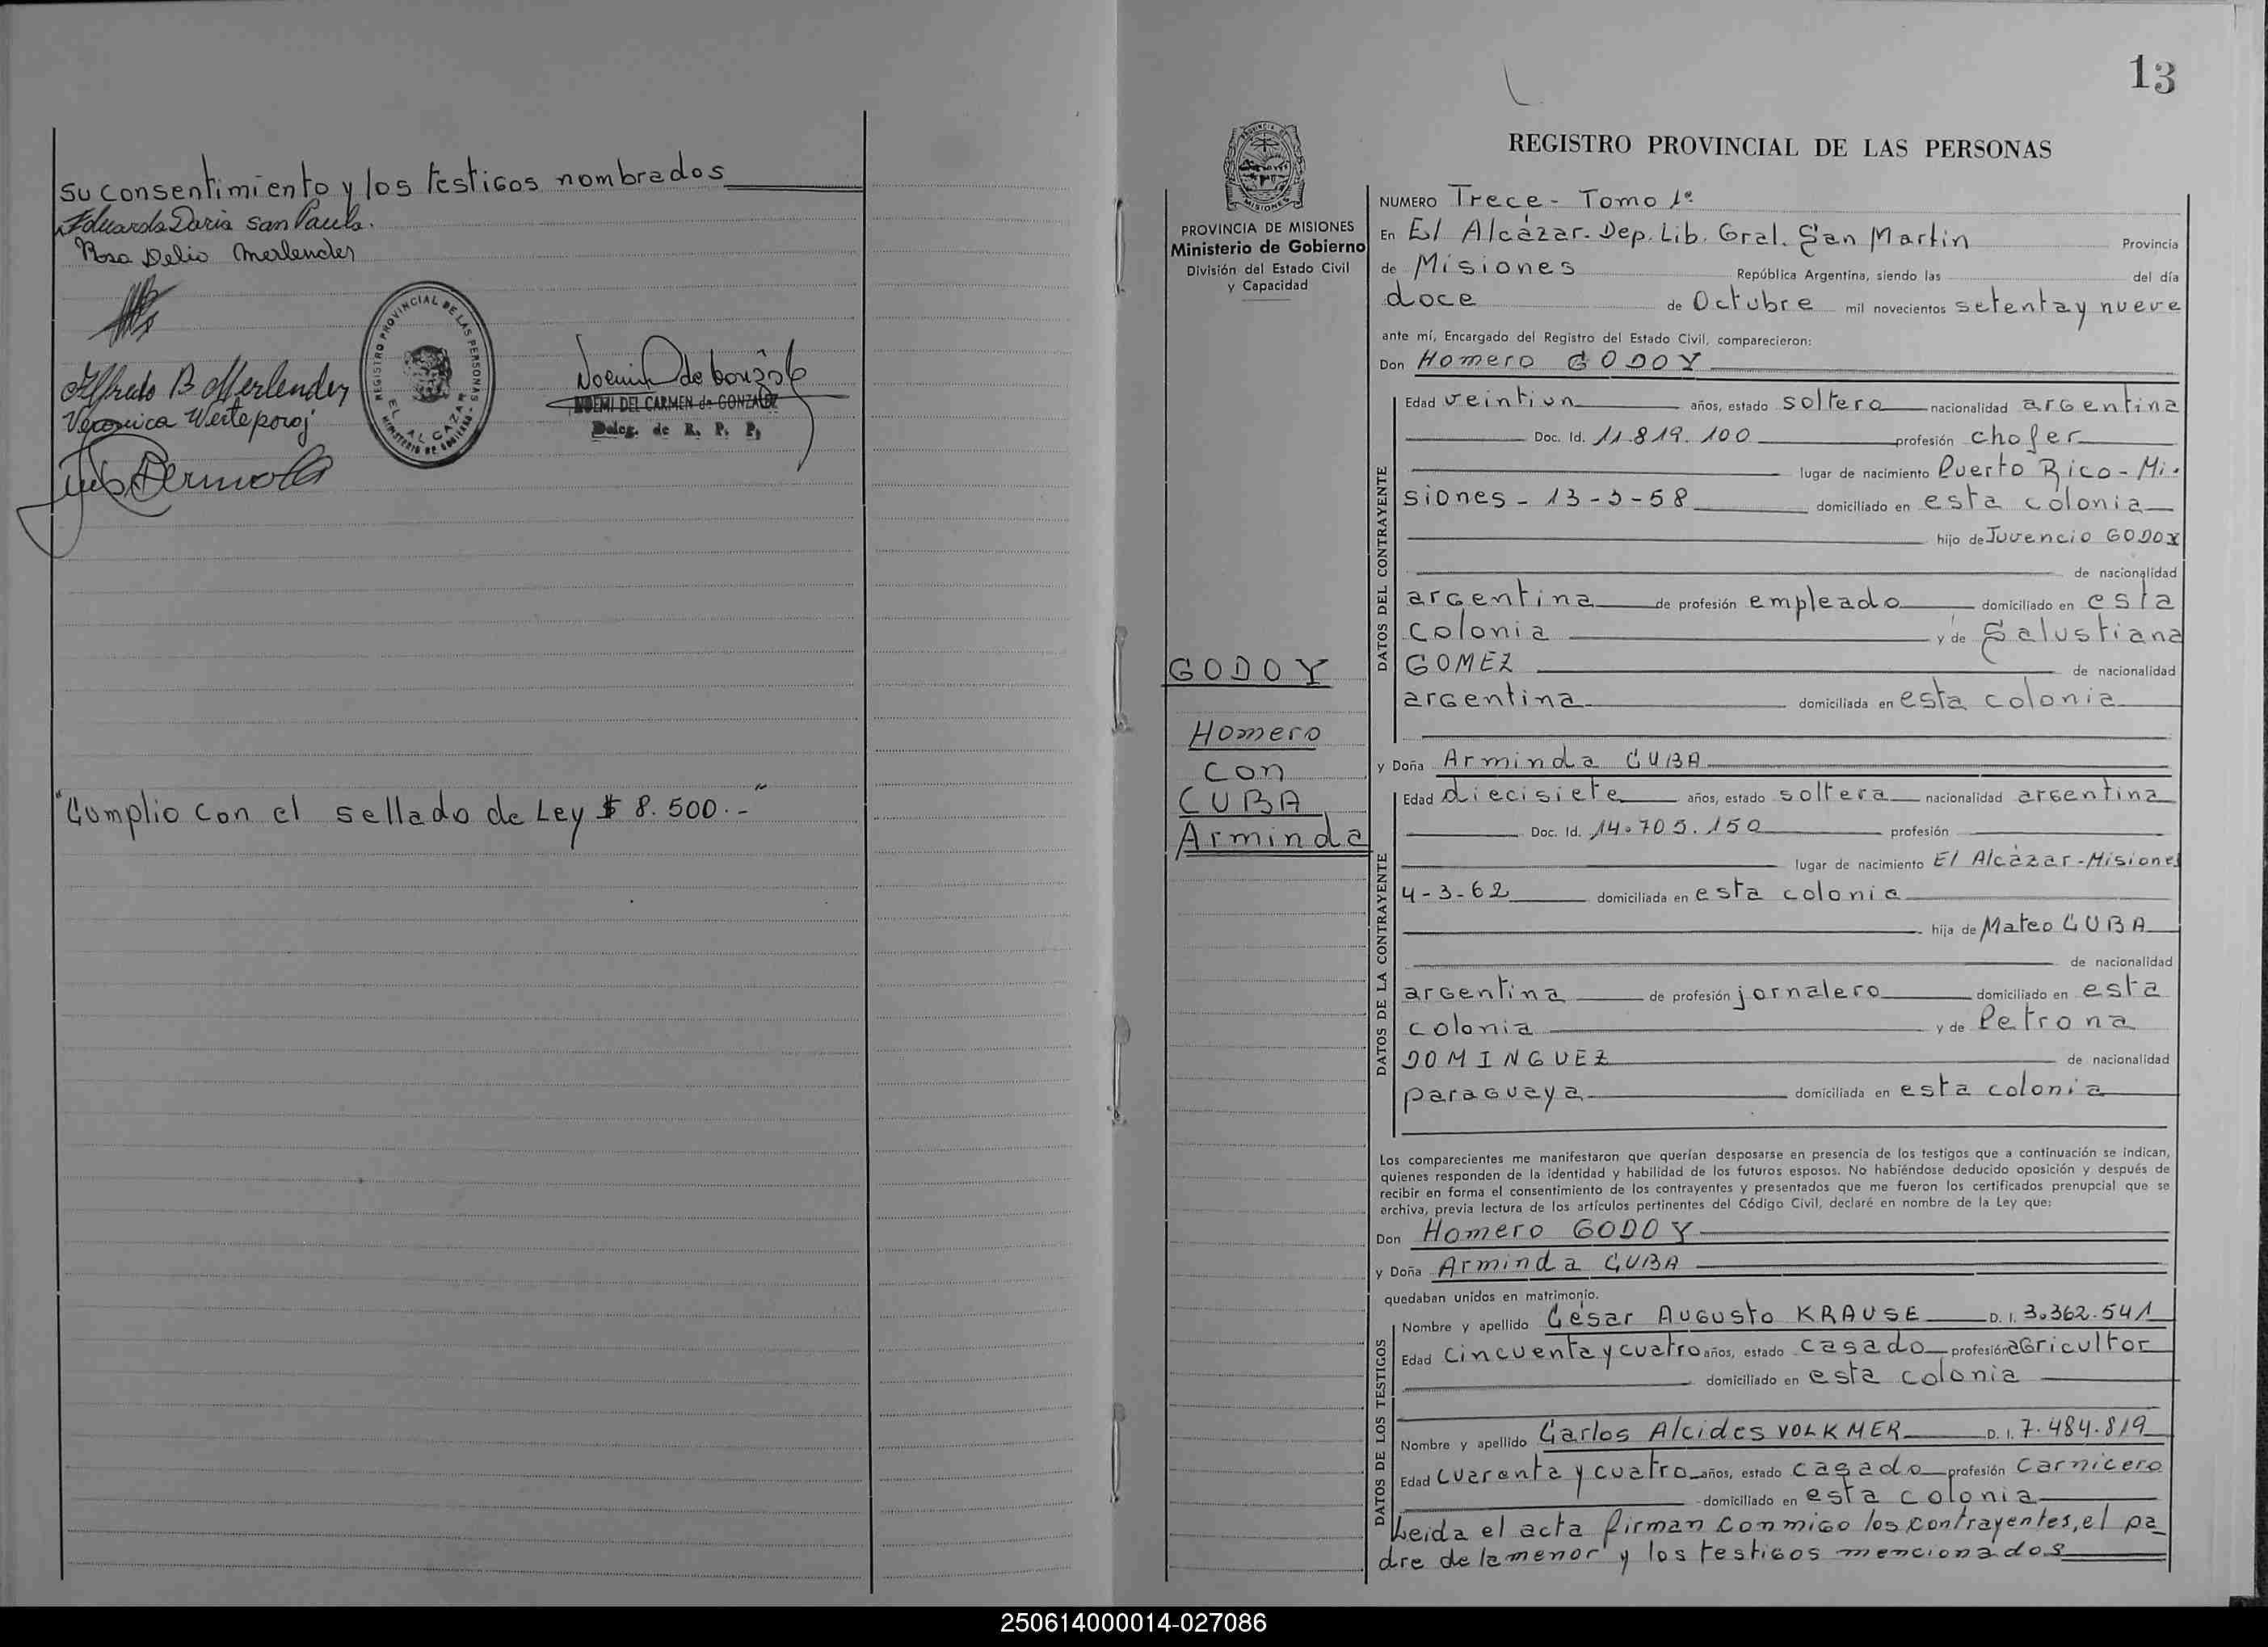 su consentimiento y los testigos nombrados
Eduardo Dario San Paulo.
Rosa Delia Merlender
Alfredo B Merlender
Veronica Werteporoj
REGISTRO PROVINCIAL DE LAS PERSONAS
EL ALCAZAR
MINISTERIO DE GOBIERNO
NOEMI DEL CARMEN de GONZALEZ
Deleg. de R. P. P.
"Cumplio con el sellado de Ley $ 8.500.-"
13
PROVINCIA DE MISIONES
Ministerio de Gobierno
División del Estado Civil
y Capacidad
GODOY
Homero
con
CUBA
Arminda
REGISTRO PROVINCIAL DE LAS PERSONAS
NUMERO Trece - Tomo 1º
En El Alcázar. Dep. Lib. Gral. San Martin Provincia
de Misiones República Argentina, siendo las del día
doce de Octubre mil novecientos setenta y nueve
ante mí, Encargado del Registro del Estado Civil, comparecieron:
Don Homero GODOY
DATOS DEL CONTRAYENTE
Edad veintiun años, estado soltero nacionalidad argentina
Doc. Id. 11.819.100 profesión chofer
lugar de nacimiento Puerto Rico - Mi-
siones - 13-3-58 domiciliado en esta colonia
hijo de Juvencio GODOY
de nacionalidad
argentina de profesión empleado domiciliado en esta
colonia y de Salustiana
GOMEZ de nacionalidad
argentina domiciliada en esta colonia
y Doña Arminda CUBA
DATOS DE LA CONTRAYENTE
Edad diecisiete años, estado soltera nacionalidad argentina
Doc. Id. 14.705.150 profesión
lugar de nacimiento El Alcázar - Misiones
4-3-62 domiciliada en esta colonia
hija de Mateo CUBA
de nacionalidad
argentina de profesión jornalero domiciliado en esta
colonia y de Petrona
DOMINGUEZ de nacionalidad
paraguaya domiciliada en esta colonia
Los comparecientes me manifestaron que querían desposarse en presencia de los testigos que a continuación se indican,
quienes responden de la identidad y habilidad de los futuros esposos. No habiéndose deducido oposición y después de
recibir en forma el consentimiento de los contrayentes y presentados que me fueron los certificados prenupcial que se
archiva, previa lectura de los artículos pertinentes del Código Civil, declaré en nombre de la Ley que:
Don Homero GODOY
y Doña Arminda CUBA
quedaban unidos en matrimonio.
DATOS DE LOS TESTIGOS
Nombre y apellido César Augusto KRAUSE D. I. 3.362.541
Edad cincuenta y cuatro años, estado casado profesión agricultor
domiciliado en esta colonia
Nombre y apellido Carlos Alcides VOLKMER D. I. 7.484.819
Edad cuarenta y cuatro años, estado casado profesión carnicero
domiciliado en esta colonia
Leida el acta firman conmigo los contrayentes, el pa
dre de la menor y los testigos mencionados
250614000014-027086